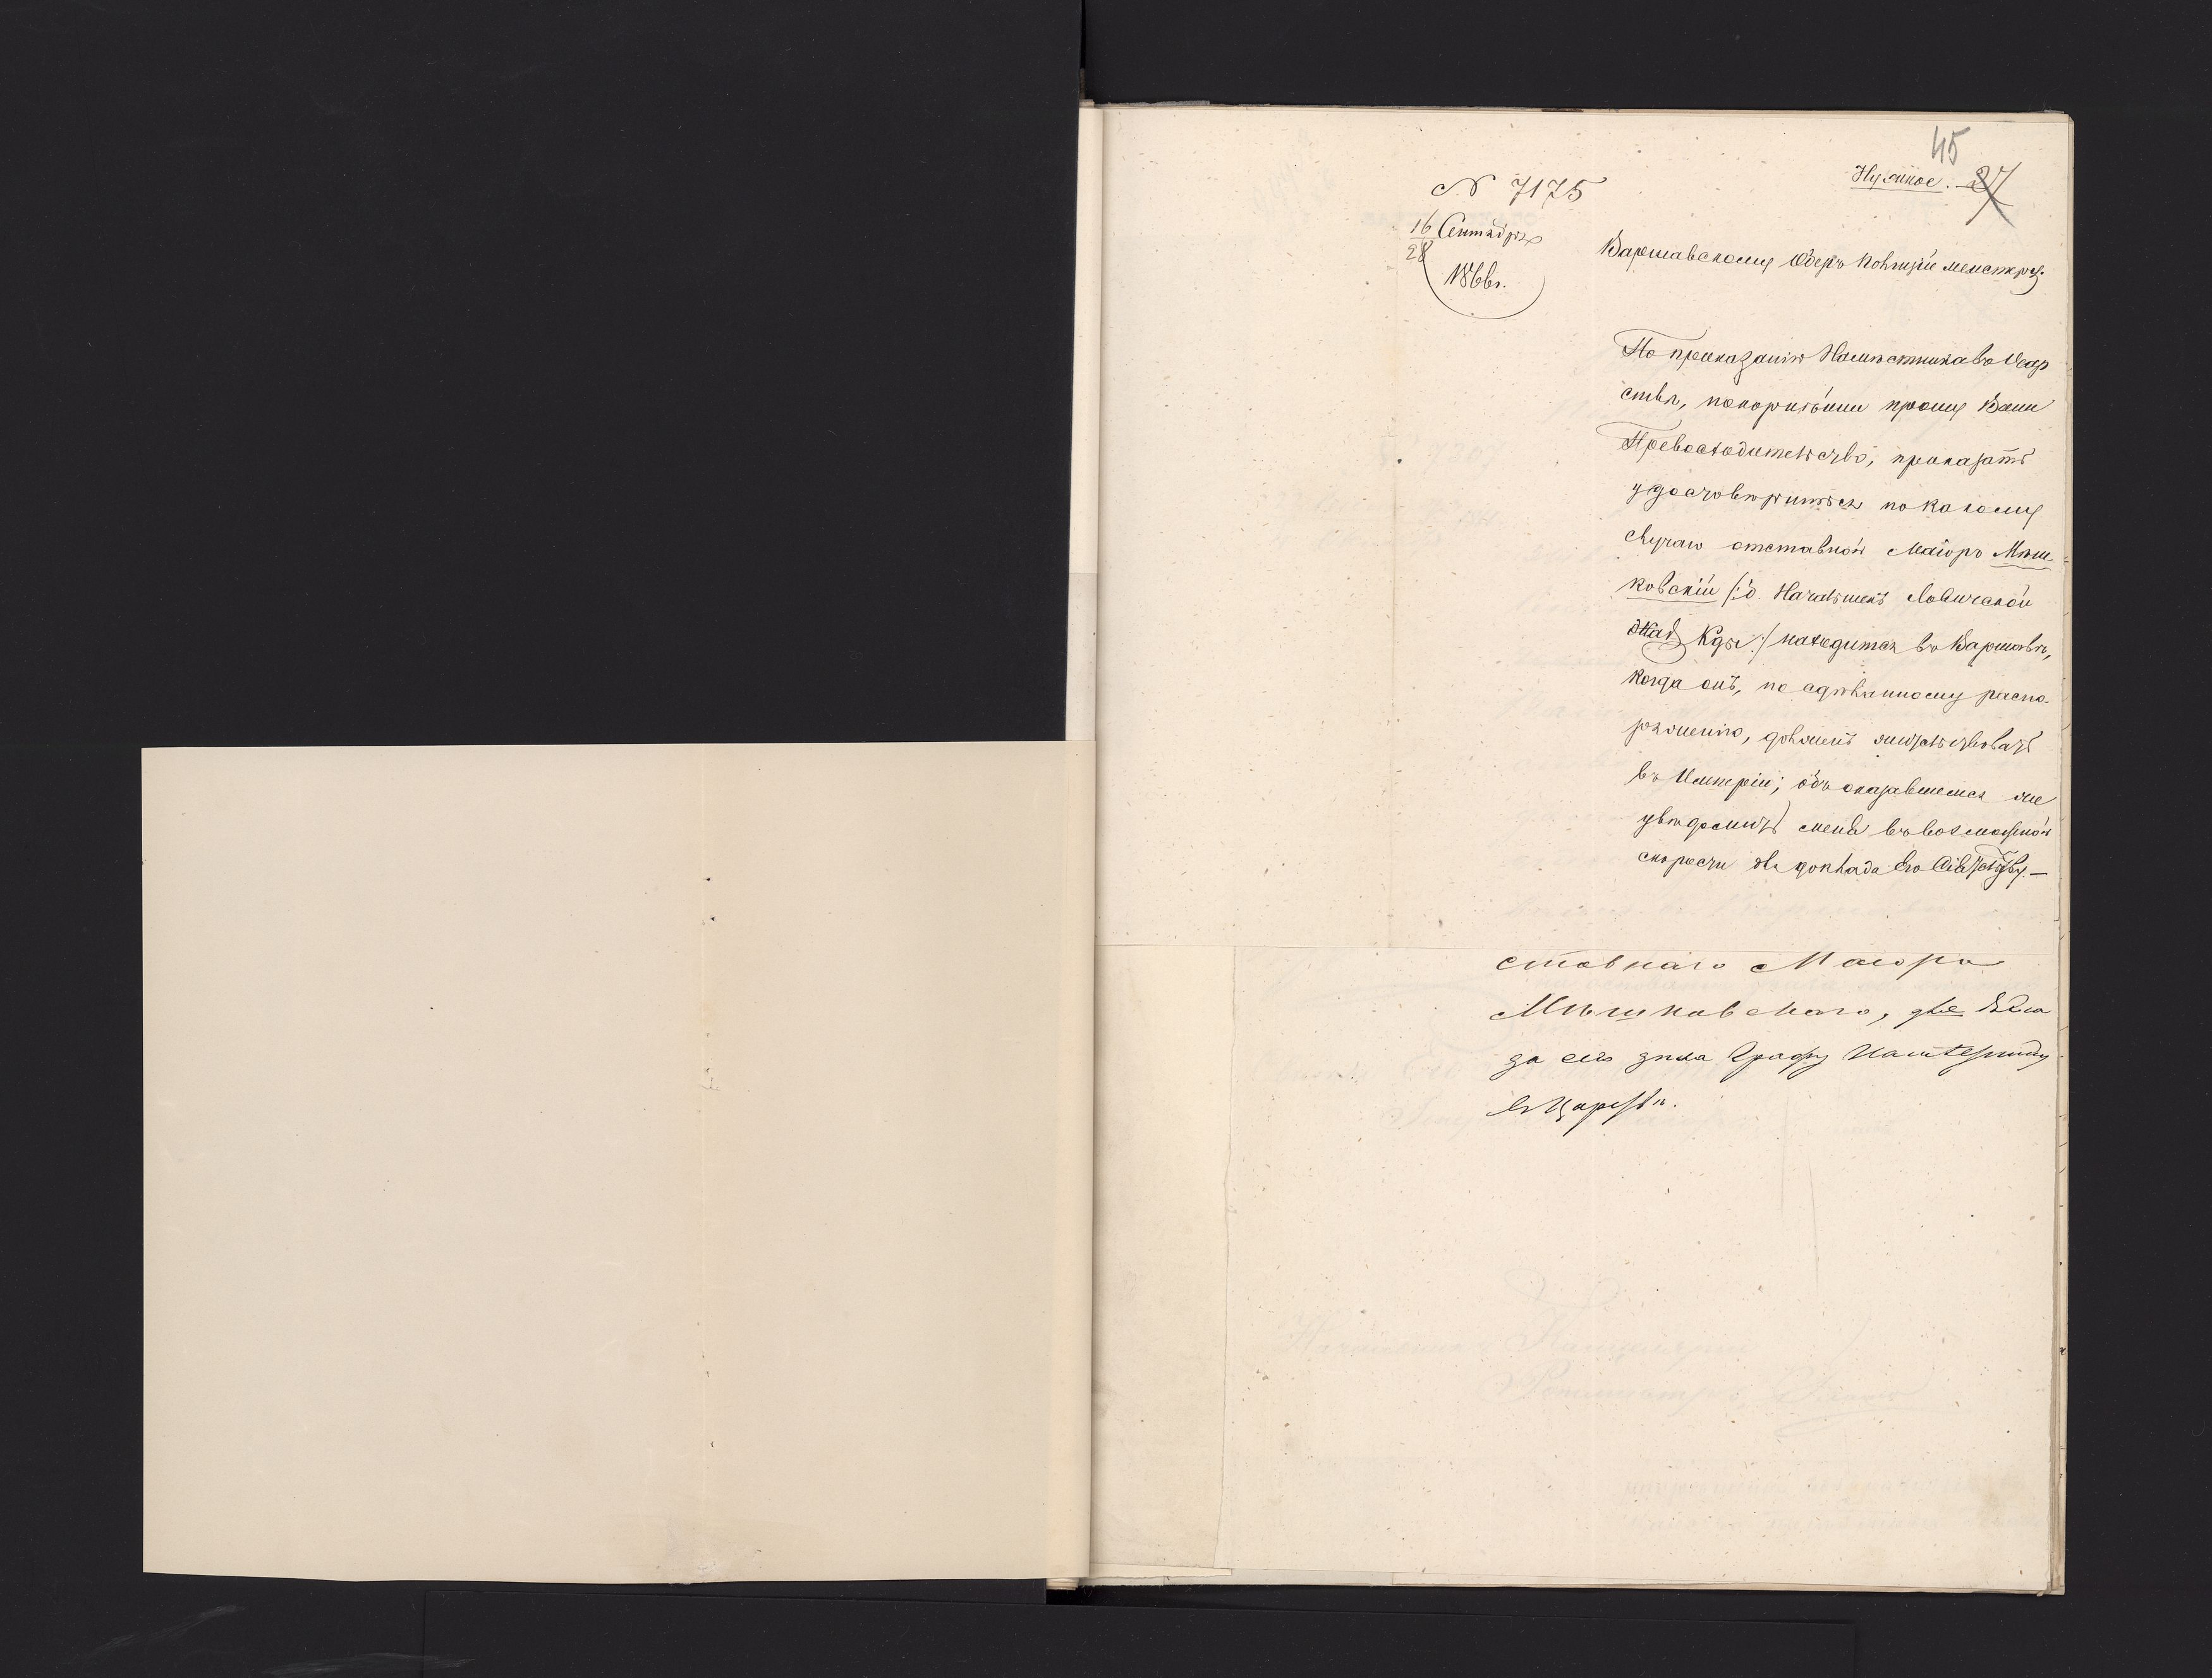 45
Нужное. 37
N 7175
16 Сентября
28
1866 г.
Варшавскому Оберъ Полицiймейстеру.
По приказанiю Намѣстника въ Цар
ствѣ, покорнѣйше прошу Ваше
Превосходительство, приказать
удостовѣриться по какому
случаю отставной Маiоръ Мѣш-
ковскiй /:б. Начальникъ Ловичской
Жад Кды:/ находится въ Варшавѣ,
когда онъ, по сдѣланному распо-
ряженiю, долженъ жительствовать
въ Имперiи; объ оказавшемся же
увѣдомить меня въ возможной
скорости для доклада Его Сiятельству.—
ставнаго Маiора
Мѣшковскаго, для докла
да сего дѣла Графу Намѣстнику
въ Царствѣ.